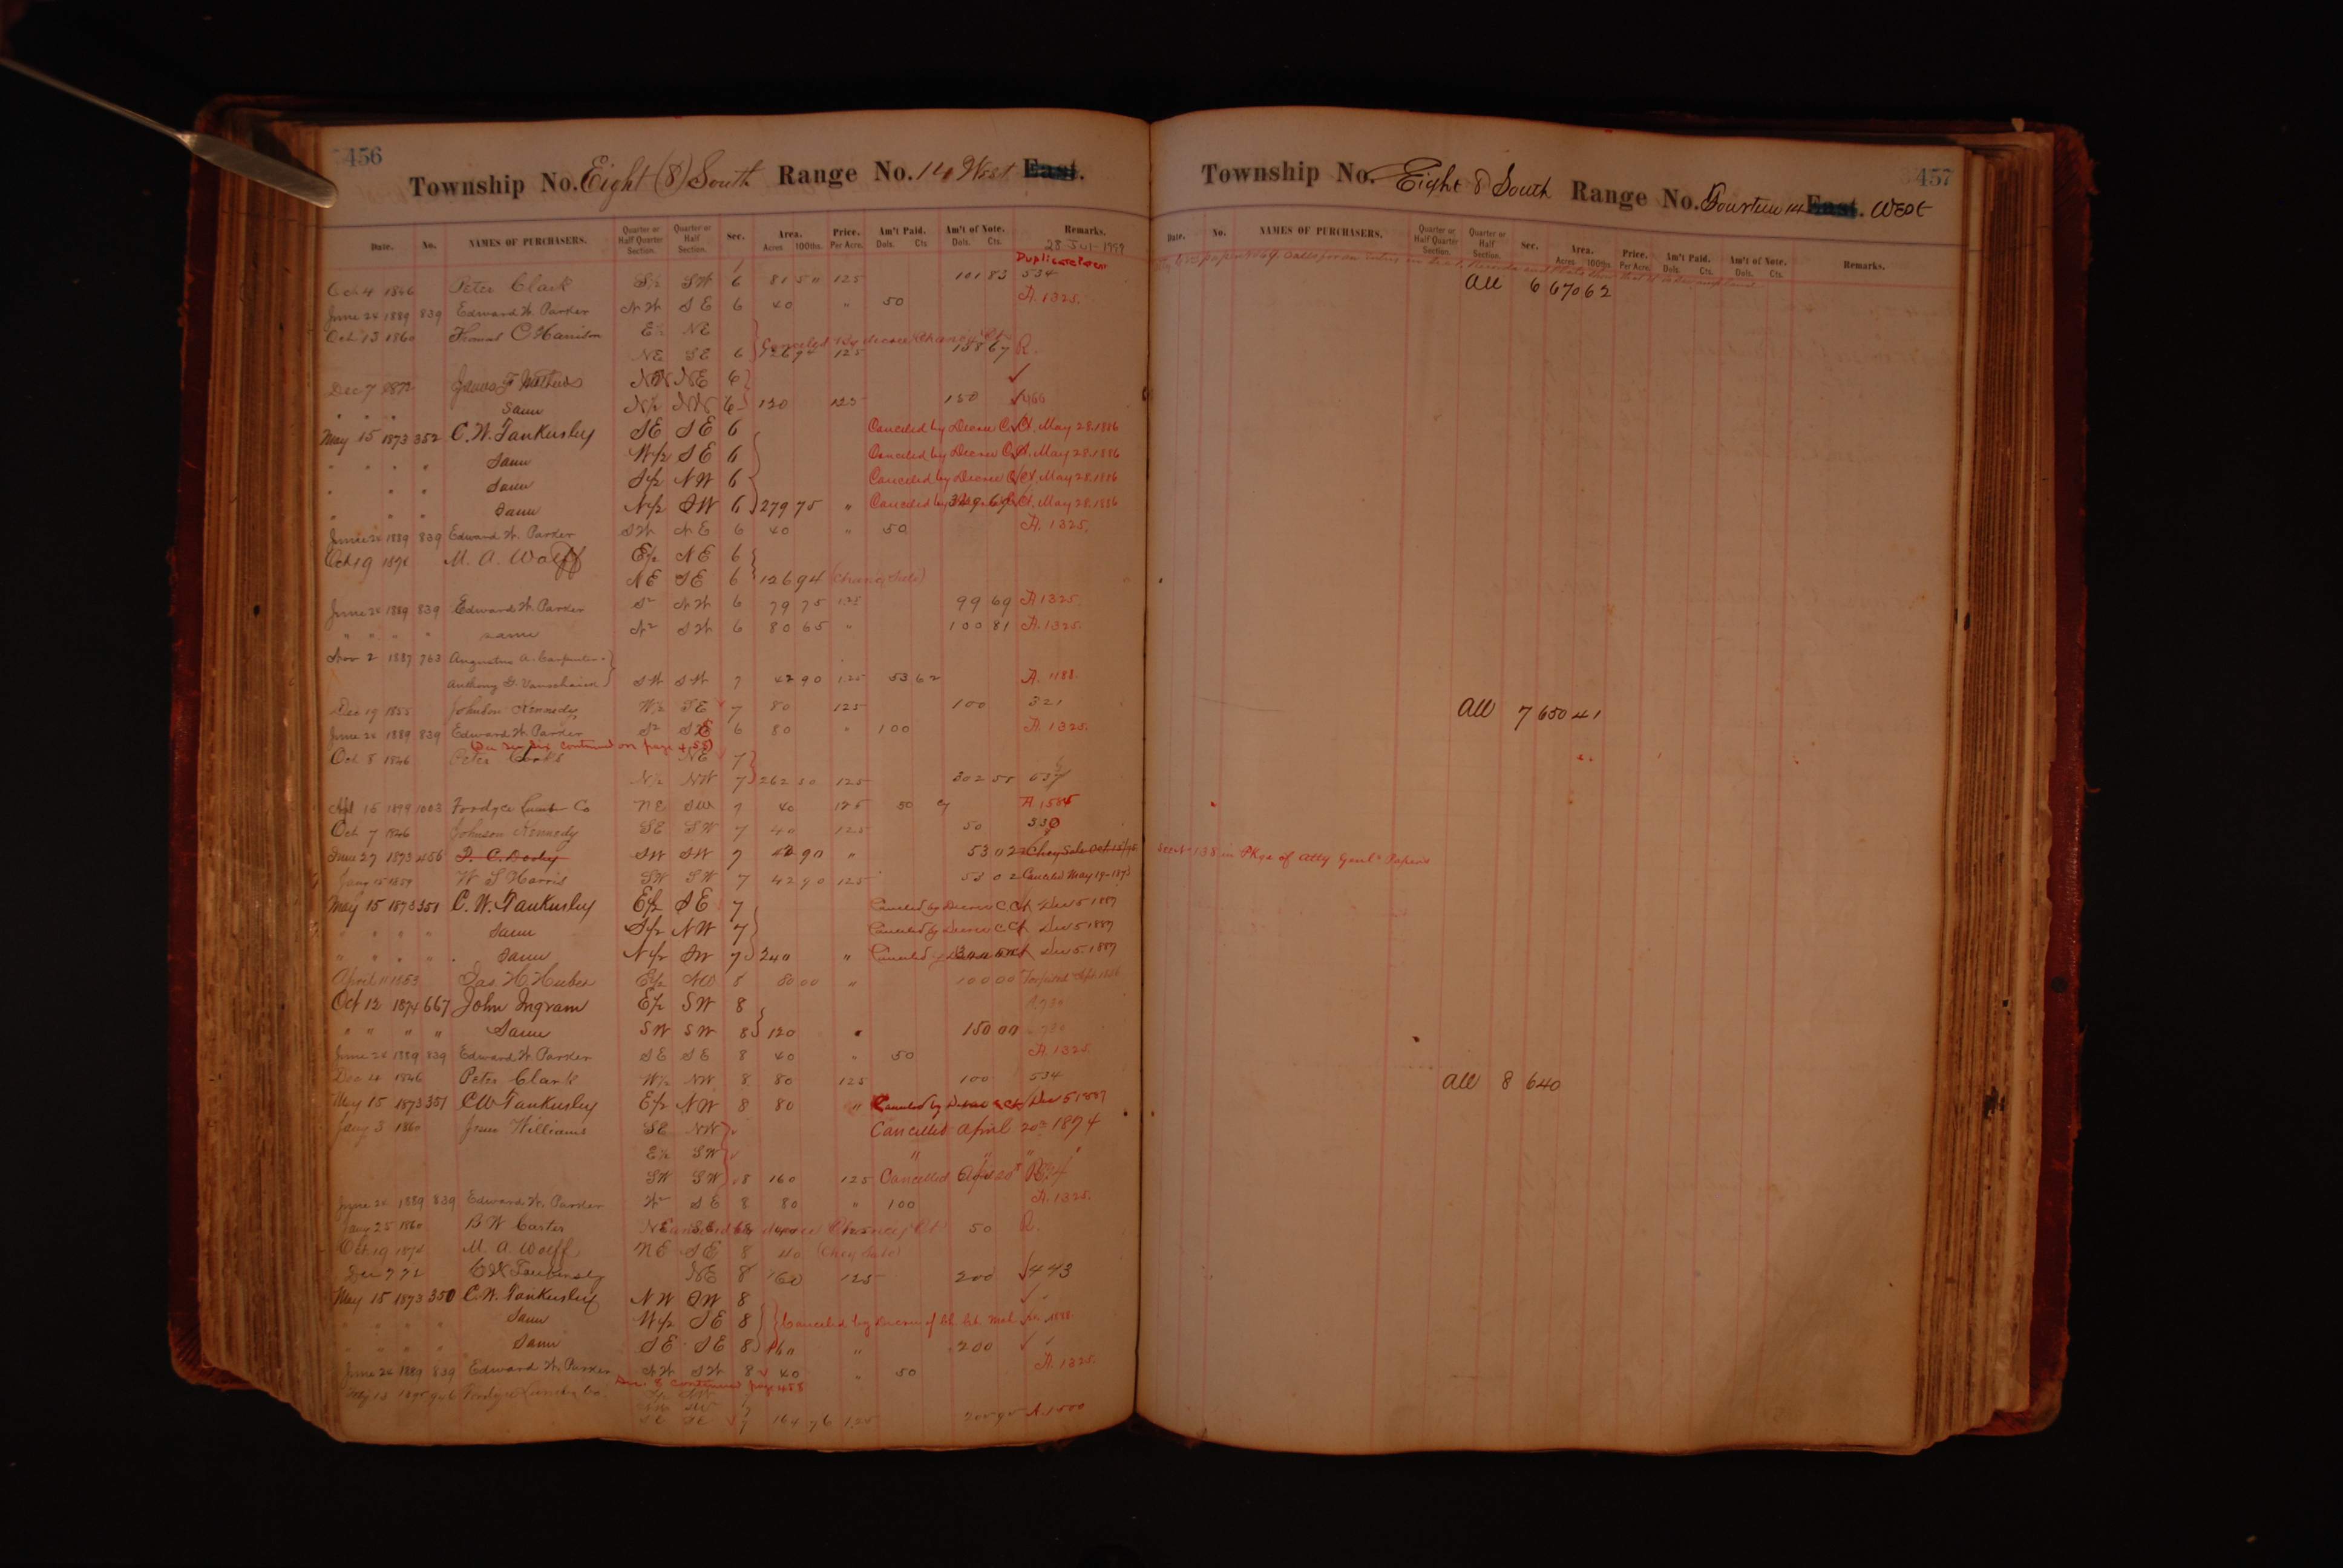 456
Township No. Eight (8) South Range No. 14 West East.
Date. No. NAMES OF PURCHASERS. Quarter or Half Quarter Section. Quarter or Half Section. Sec. Area. Acres 100ths. Price. Per Acre. Am't Paid. Dols. Cts. Am't of Note. Dols. Cts. Remarks.
28-Jul-1999
Duplicate Patent
Oct 4 1846 Peter Clark S½ SW 6 81 50 125 101 83 534
June 24 1889 839 Edward W. Parker NW SE 6 40 " 50 A. 1325.
Oct 13 1860 Thomas C Harrison E½ NE
Canceled by decree Chancy Ct
NE SE 6 126 94 125 158 67 R.
Dec 7 1872 NW NE 6
" " " Same N½ NW 6 120 125 150 466
May 15 1873 352 C. W. Tankersley SE SE 6 Canceled by Decree C. Ct. May 28. 1886
" " " " Same W½ SE 6 Canceled by Decree C. Ct. May 28. 1886
" " " Same S½ NW 6 Canceled by Decree C. Ct. May 28. 1886
" " " Same N½ SW 6 279 75 " Canceled by 349 69 Ct. May 28. 1886
June 24 1889 839 Edward W. Parker SW NE 6 40 " 50 A. 1325.
Oct 19 M. A. Wolff E½ NE 6
NE SE 6 126 94 (Chancy Sale)
June 24 1889 839 Edward W. Parker S² NW 6 79 75 1.25 99 69 A. 1325.
" " " " same N² SW 6 80 65 " 100 81 A. 1325.
Nov 2 1887 763 Augustus A. Carpenter
Anthony G. Vanschaick SW SW 7 42 90 1.25 53 62 A. 1188.
Dec 19 1855 Johnson Kennedy W½ SE 7 80 125 100 321
June 24 1889 839 Edward W. Parker S² SE 6 80 " 100 A. 1325.
(See Sec Six continued on page 455)
Oct 8 1846 Peter NE 7
N½ NW 7 262 50 125 302 55
Apl 15 1899 1003 Fordyce Lumber Co NE SW 7 40 125 50 A. 1585
Oct 7 1846 Johnson Kennedy SE SW 7 40 125 50 330
June 27 1873 456 P. C. Dooley SW SW 7 42 90 " 53 02 Chcy Sale Oct
Jany 15 1859 W S Harris SW SW 7 42 90 125 53 02 Canceled May 19-1873
May 15 1873 351 C. W. Tankersley E½ SE 7 Canceled by Decree C. Ct Dec 5 1887
" " " " Same S½ NW 7 Canceled by Decree C Ct Dec 5 1887
" " " " Same N½ SW 7 240 " Canceled by Dec 5. 1887
April 11 1853 Jas. H. Hubes E½ NW 8 80 00 " 100 00 Forfeited Sept
Oct 12 1874 667 John Ingram E½ SW 8
" " " " Same SW SW 8 120 " 150 00
June 24 1889 839 Edward W. Parker SE SE 8 40 " 50 A. 1325.
Dec 4 1846 Peter Clark W½ NW 8 80 125 100 534
May 15 1873 351 C W Tankersley E½ NW 8 80 " Canceled by Decree C Ct Dec 5 1887
Jany 3 1860 Williams SE NW Cancelled April 20th 1874
E½ SW " " " "
SW SW 8 160 125 Cancelled April 20th
June 24 1889 839 Edward W. Parker W² SE 8 80 " 100 A. 1325.
Jany 25 1860 B W Carter NE SE 8 Canceled by decree Chancey Ct 50 R.
Oct 19 M. A. Wolff NE SE 8 40 (Chcy Sale)
Dec 7 72 C W Tankersley NE 8 160 125 200 443
May 15 1873 350 C. W. Tankersley NW SW 8
" " " " Same W½ SE 8 Canceled by Decree of Ch. Ct.
" " " " Same SE SE 8 160 " 200
June 24 1889 839 Edward W. Parker NW SW 8 40 " 50 A. 1325.
Sec. 8 continued page 458
Fordyce Lumber Co. S½ NW
NW SW 7
SE SE 7 164 76 1.25 205 95 A. 1500
457
Township No. Eight 8 South Range No. Fourteen 14 East. West
Date. No. NAMES OF PURCHASERS. Quarter or Half Quarter Section. Quarter or Half Section. Sec. Area. Acres 100ths. Price. Per Acre. Am't Paid. Dols. Cts. Am't of Note. Dols. Cts. Remarks.
All 6 670 62
All 7 650 41
138 in Pkge of Atty Genl's Papers
All 8 640